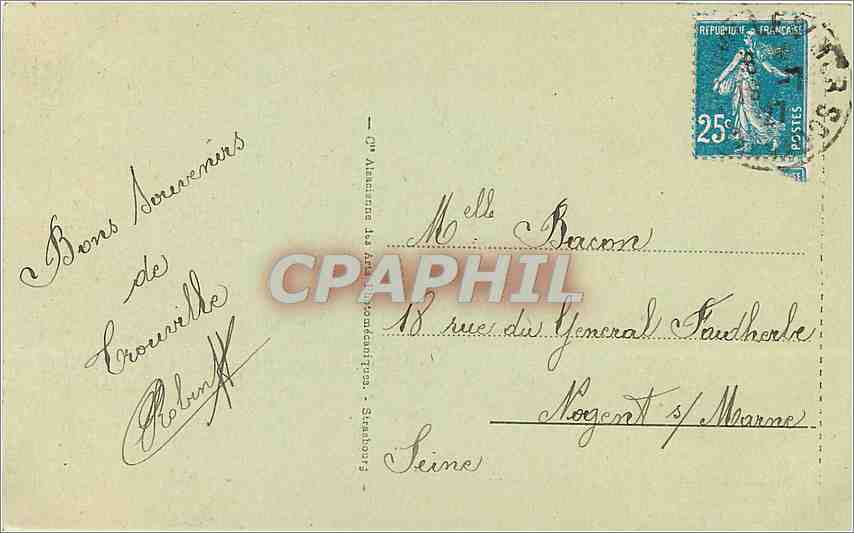 Bons Souvenirs
de
Trouville
Robin
Cie Alsacienne des Arts Photomécaniques. - Strasbourg
RÉPUBLIQUE FRANÇAISE
25c
POSTES
Melle Bacon
18 rue du General Faidherbe
Nogent s/ Marne
Seine
CPAPHIL